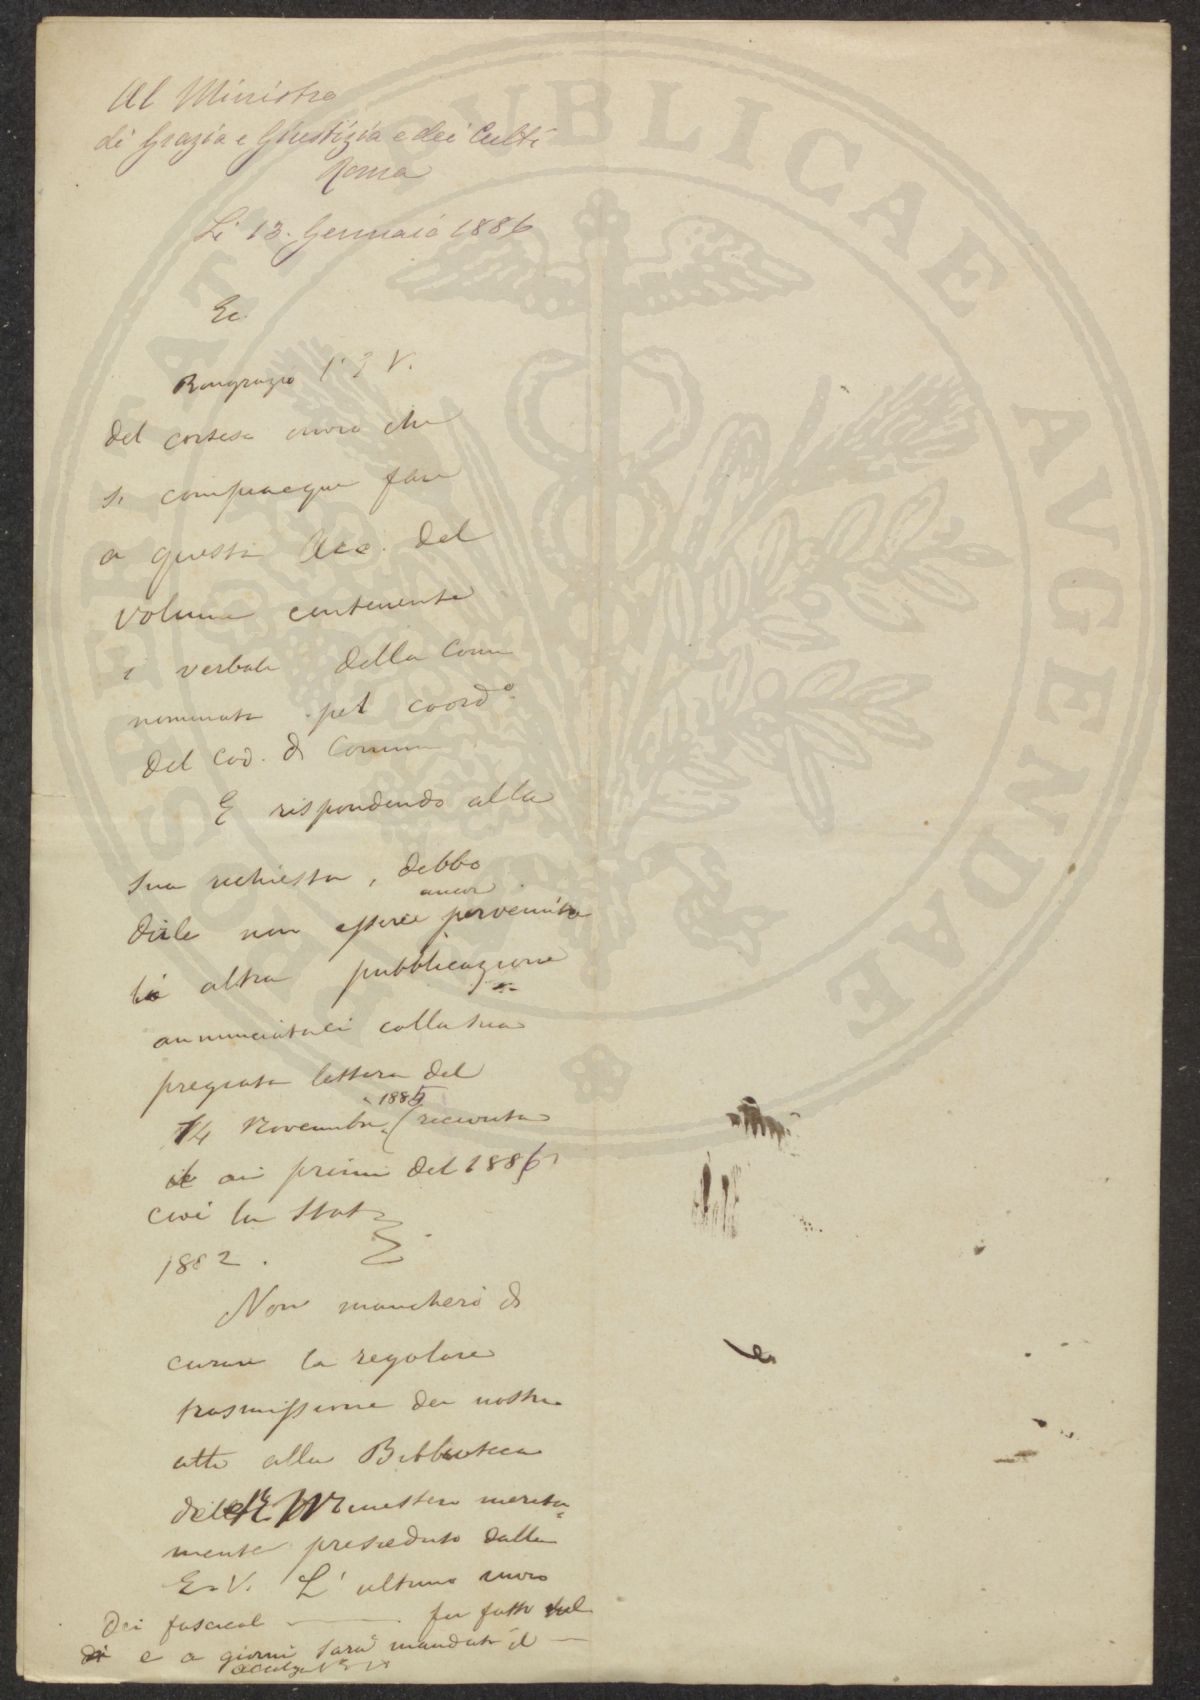 Al Ministro
di Grazia e Giustizia e dei Culti
Roma
Li 13. Gennaio 1886
Ec.
Rangrazio l' E V.
del cortese invio che
si compiacque fare
a questa Acc. del
volume contenente
i verbali della Comm
nominata pel coord.o
del Cod. di Comm
E rispondendo alla
sua richiesta, debbo
ancor
dirle non essere pervenuta
la altra pubblicazione
annunciataci colla sua
pregiata lettera del
1885
14 Novembre (ricevuta
ai primi del 1886)
cioè la Stat
1882.
Non mancherò di
curare la regolare
trasmissione dei nostri
atti alla Biblioteca
del Ministero merita=
mente presieduto dalla
E. V. L' ultimo invio
dei fascicol — fu fatto
e a giorni sarà mandato il —
PROSPERITATI PUBLICAE AVGENDAE